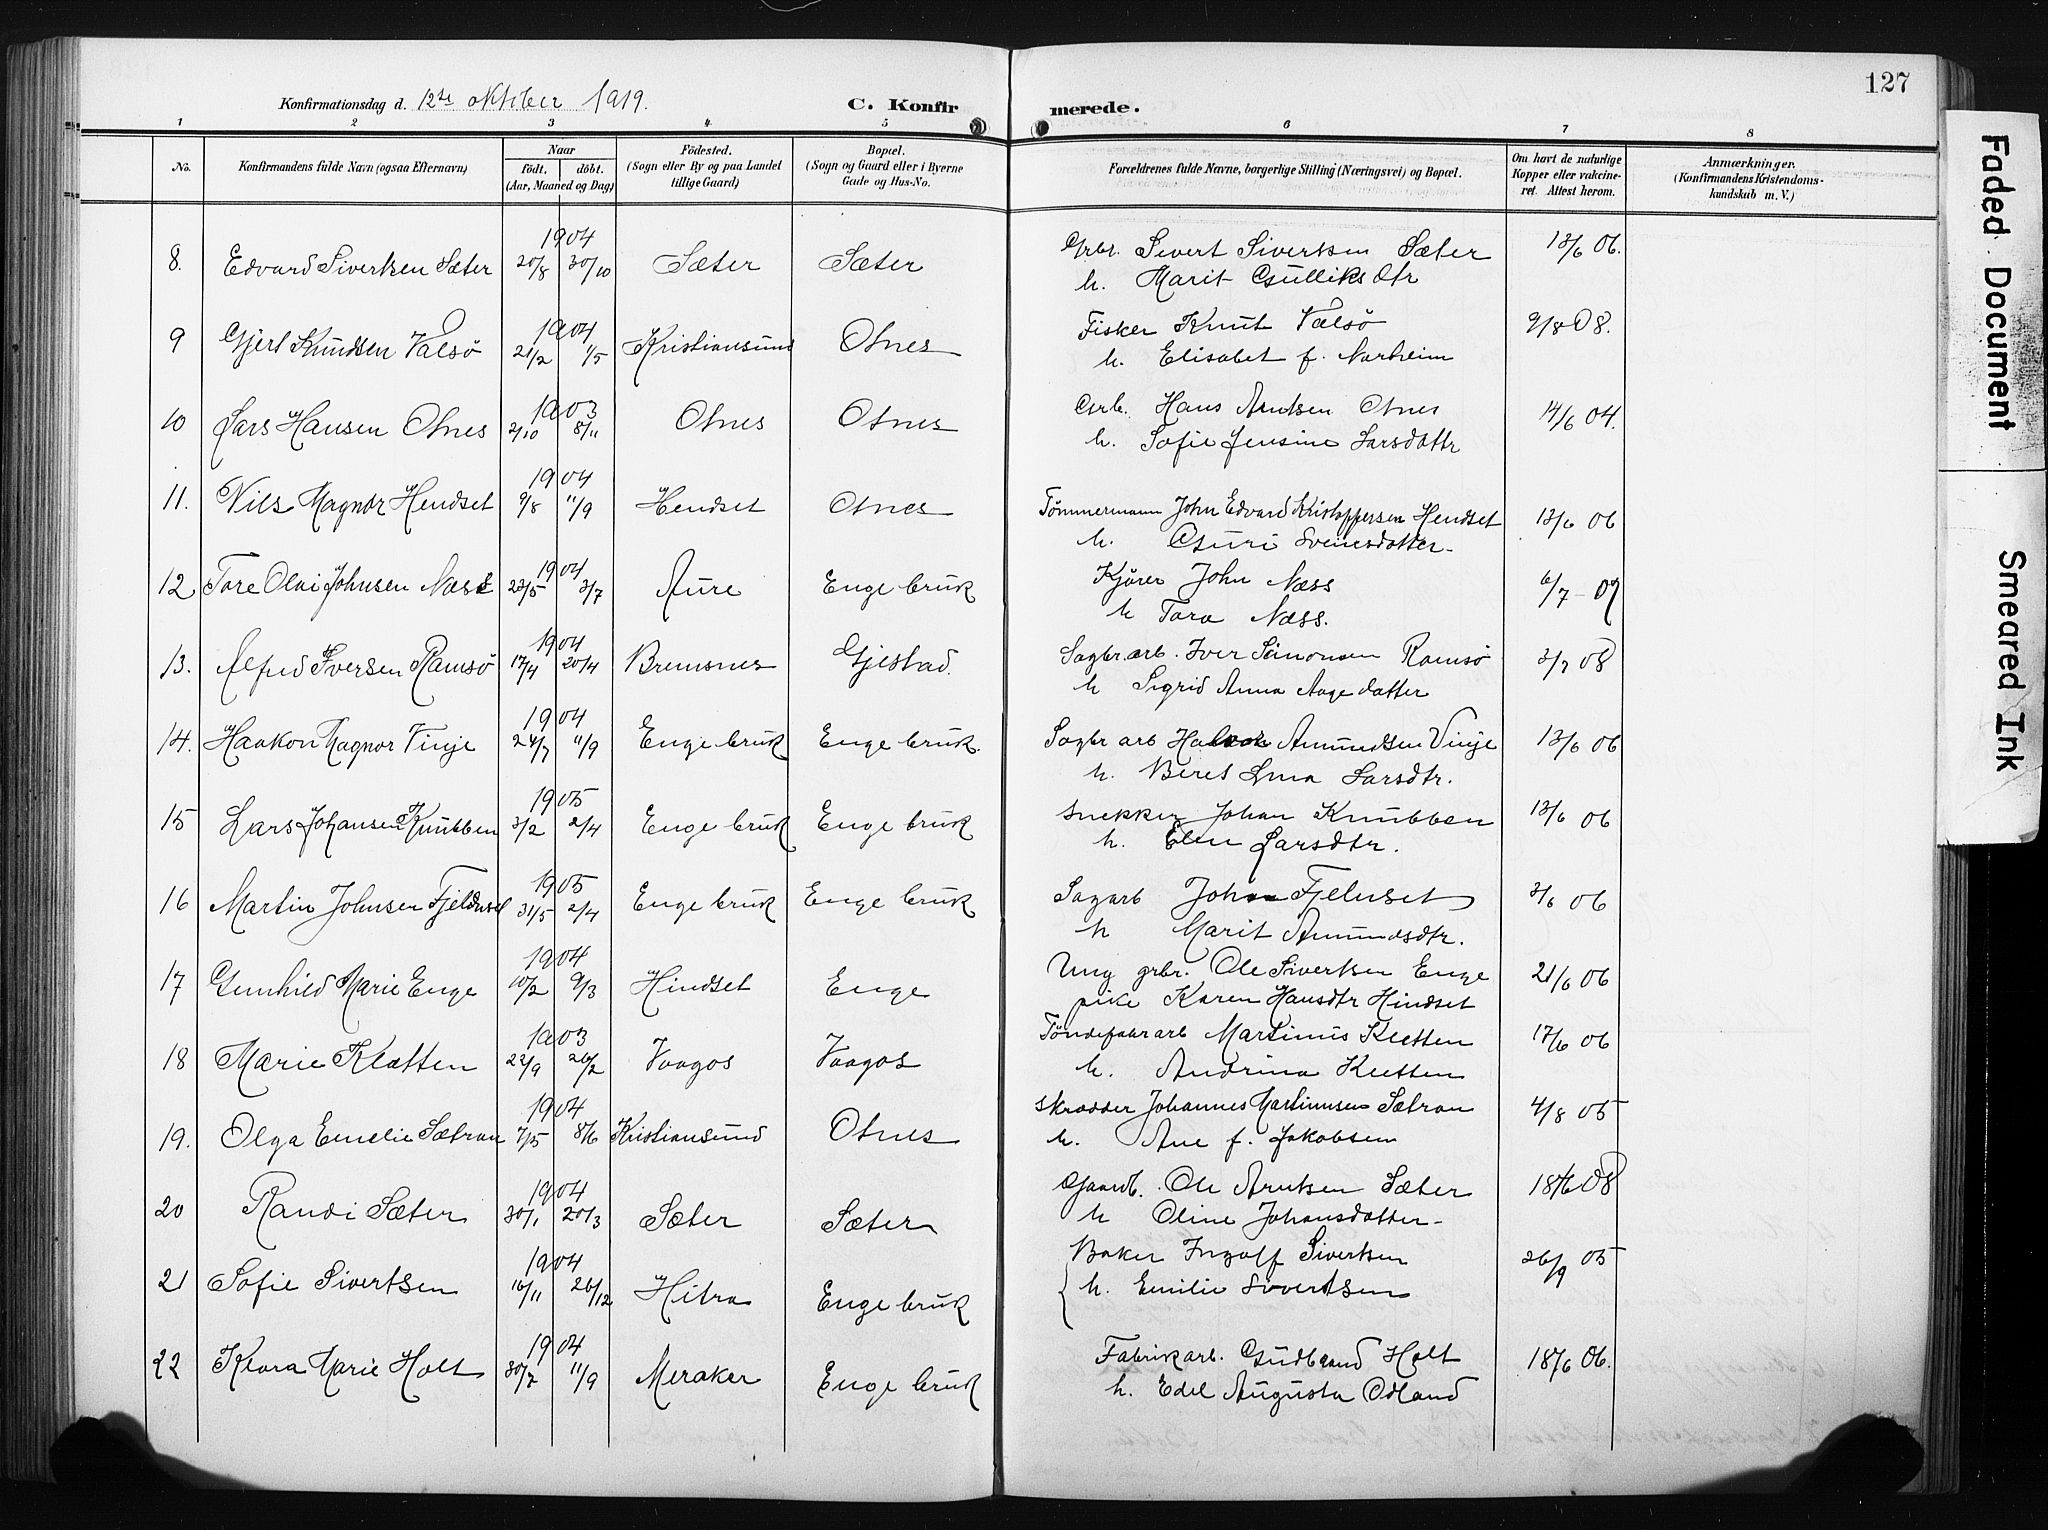 127
Konfirmationsdag d. 12te oktober 1919.
C. Konfirmerede.
1 2 3 4 5 6 7 8
No. Konfirmandens fulde Navn (ogsaa Efternavn) Naar født. døbt. (Aar, Maaned og Dag) Fødested. (Sogn eller By og paa Landet tillige Gaard) Bopæl. (Sogn og Gaard eller i Byerne Gade og Hus-No. Forældrenes fulde Navne, borgerlige Stilling (Næringsvei) og Bopæl. Om havt de naturlige Kopper eller vakcineret. Attest herom. Anmærkninger. (Konfirmandens Kristendomskundskab m. V.)
1904
8. Edvard Sivertsen Sæter 20/8 30/10 Sæter Sæter Grbr. Sivert Sivertsen Sæter 13/6 06.
h. Marit Gulliksdtr
1904
9 Gjert Knudsen Valsø 21/2 1/5 Kristiansund Otnes Fisker Knut Valsø 9/8 08.
h. Elisabet f. Norheim
1903
10 Lars Hansen Otnes 2/10 8/11 Otnes Otnes Grb. Hans Arntsen Otnes 14/6 04.
h. Sofie Jensine Larsdattr
1904
11. Nils Magnor Hendset 9/8 11/9 Hendset Otnes Tømmermann John Edvard Kristoppersen Hendset 13/6 06
h. Guri Sveinsdatter
1904
12 Tore Olai Johnsen Næss 23/5 3/7 Aure Enge bruk Kjører John Næss 6/7 - 07
h Tora Næss.
1904
13. Alfred Iversen Ramsø 17/4 20/4 Bremsnes Gjestad. Sagbr.arb. Iver Simonsen Ramsø 3/7 08
h Sigrid Anna Aagedatter
1904
14. Haakon Magnor Vinje 24/7 11/9 Enge bruk Enge bruk. Sagbr arb Halvor Amundsen Vinje 13/6 06
h. Beret Larsdtr.
1905
15 Lars Johansen Knubben 3/2 2/4 Enge bruk Enge bruk Snekker Johan Knubben 13/6 06
h. Elen Larsdtr.
1905
16 Martin Johnsen Fjeldnset 31/5 2/4 Enge bruk Enge bruk Sagarb John Fjelnset 3/6 06
h Marit Amundsdtr.
1904
17 Gunhild Marie Enge 10/2 9/3 Hindset Enge Ung grbr. Ole Sivertsen Enge 21/6 06
pike Karen Hansdtr Hindset
1903
18 Marie Kletten 22/9 26/2 Vaagos Vaagos Tøndefabr arb Martinus Kletten 17/6 06
h. Andrina Kletten
1904
19. Olga Emelie Sætran 7/5 8/6 Kristiansund Otnes Skrædder Johannes Martinusen Sætran 4/8 05
h. Ane f. Jakobsen
1904
20 Randi Sæter 30/1 20/3 Sæter Sæter Gaardb. Ole Arntsen Sæter 18/6 08
h Oline Johansdatter
1904
21 Sofie Sivertsen 16/11 26/12 Hitra Enge bruk Baker Ingolf Sivertsen 26/9 05
h. Emilie Sivertsen
1904
22 Klara Marie Holt 30/7 11/9 Meraker Enge bruk Fabrikarb. Gudbrand Holt 18/6 06.
h. Edel Augusta Odland
Faded Document
Smeared Ink